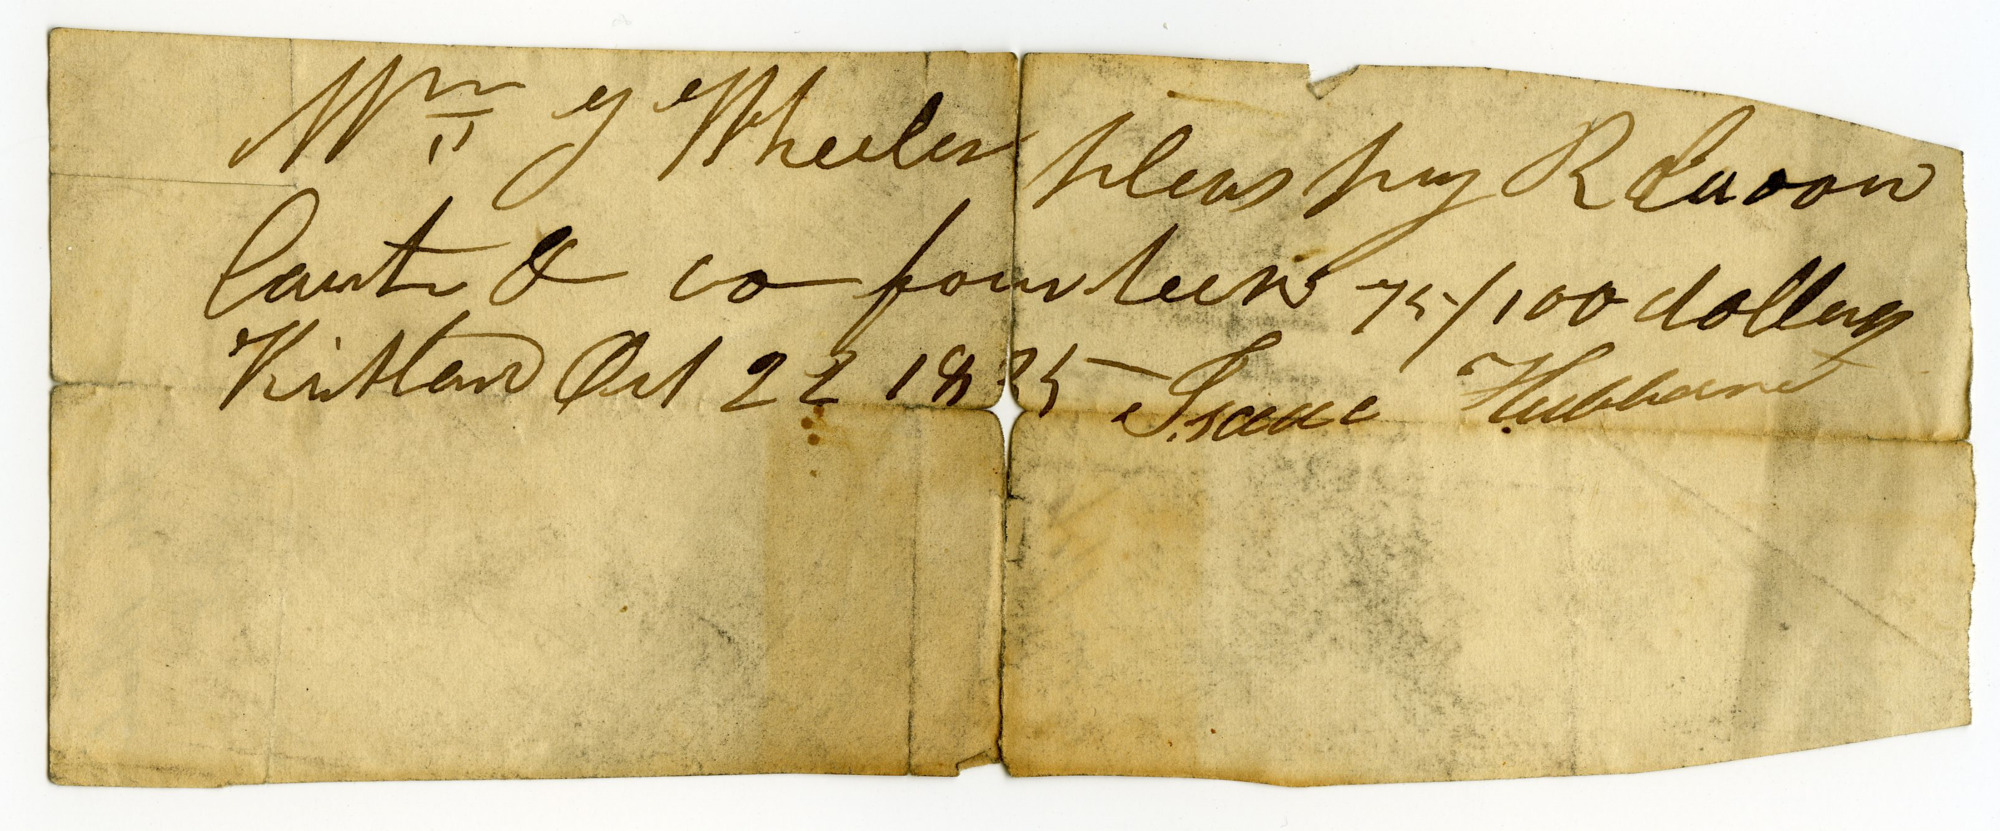 Wm y Wheeler pleas pay R
& co fourteen 75/100 dollars
Kirtland Oct 22 1835 Isaac Hubbard